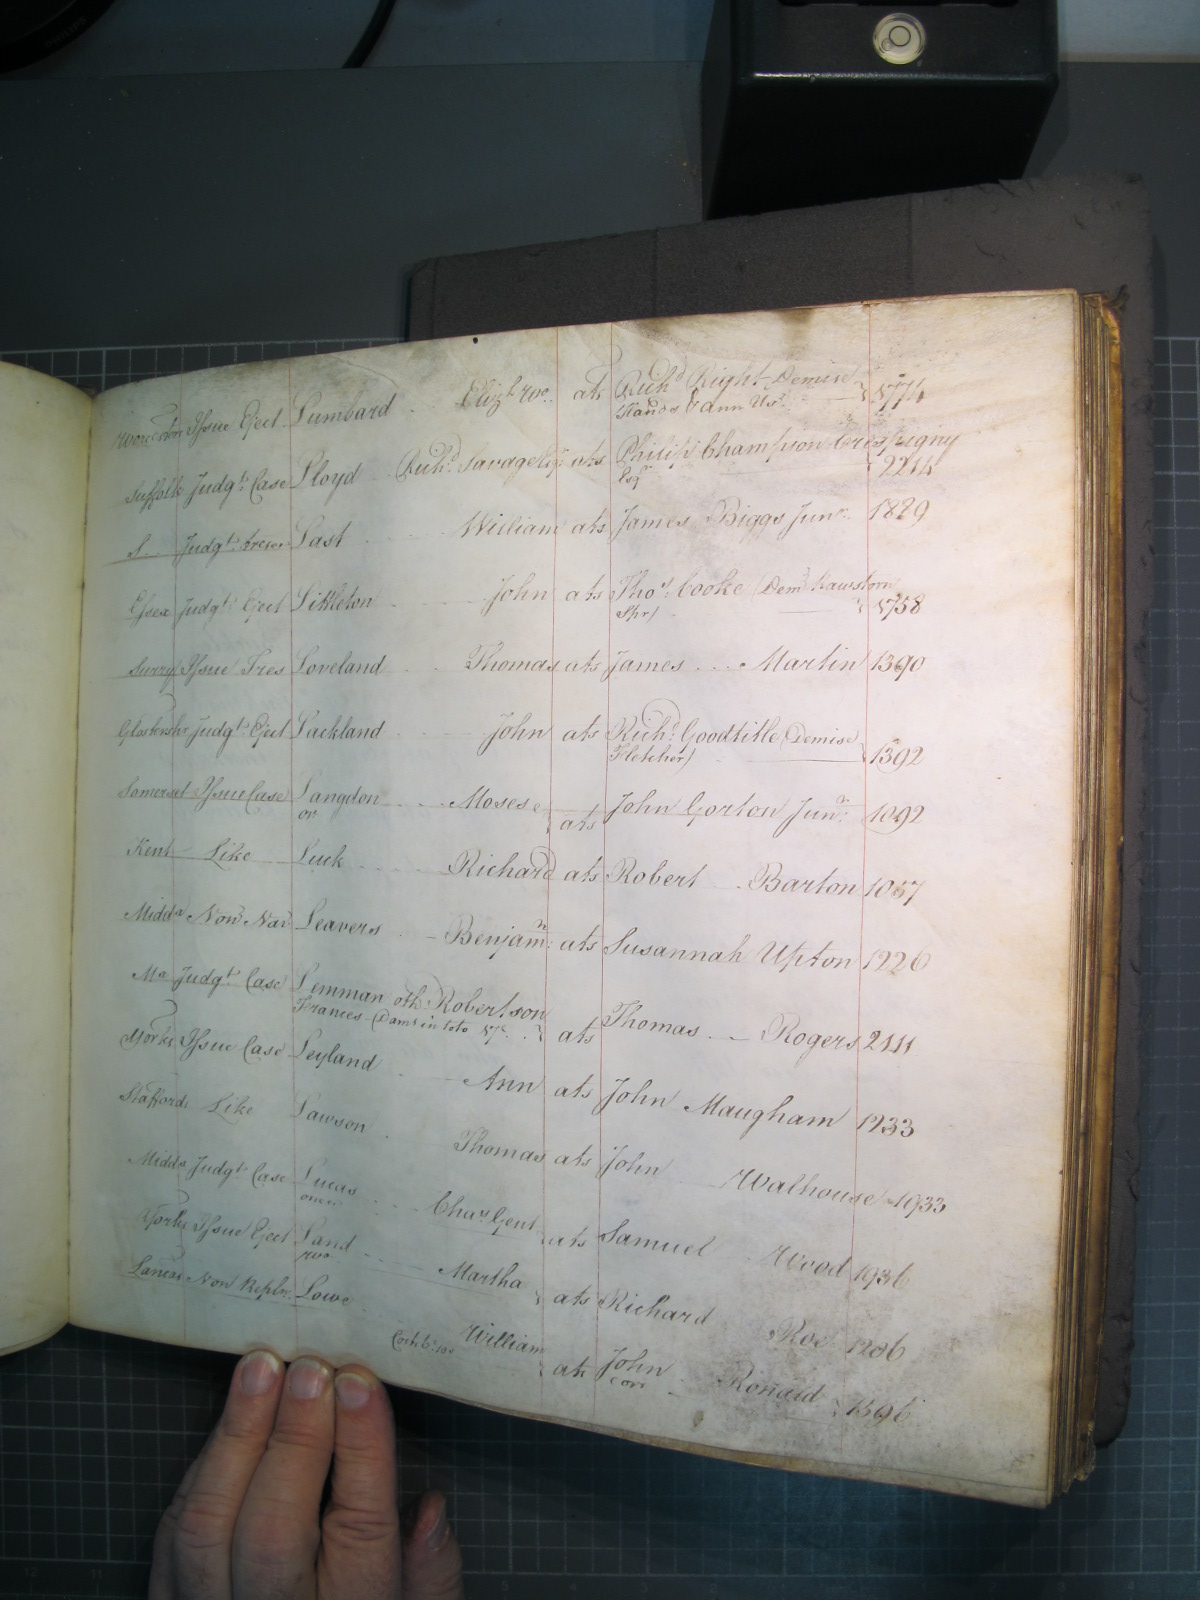 Worcester Issue Eject Lumbard Eliz.h wo. ats Rich.d Right Demise
Stands & Ann Ux.r } 1774
Suffolk Judg.t Case Lloyd Rich.d Savage Esq ats Philip Champion Crespigny
Esq.r { 2214
S. Judg.t tresp.s Last William ats James Biggs Jun.r 1829
Essex Judg.t Eject Littleton John ats Tho.s Cooke (Dem Rawstorn
Spr) 1758
Surry Issue Tres Loveland Thomas ats James Martin 1390
Glostershr Judg.t Eject Lackland John ats Rich.d Goodtitle (Demise
Fletcher) } 1392
Somerset Issue Case Langdon Moses
or } ats John Gorton Jun.r 1092
Kent Like Luck Richard ats Robert Barton 1067
Midd.x Non Nar Leavers Benjam.n ats Susannah Upton 1226
M.x Judg.t Case Lemman oth Robertson
Frances (Dams in toto 57s } ats Thomas Rogers 2111
Yorks Issue Case Leyland Ann ats John Maugham 1233
Staffords Like Lawson Thomas ats John Walhouse 1933
Midd.x Judg.t Case Lucas Cha.s Gent
ats Samuel Wood 1936
Yorks Issue Eject Land Martha
ats Richard Roe 1206
Lancas Non Repln. Lowe William
ats John Ronald
} 1396